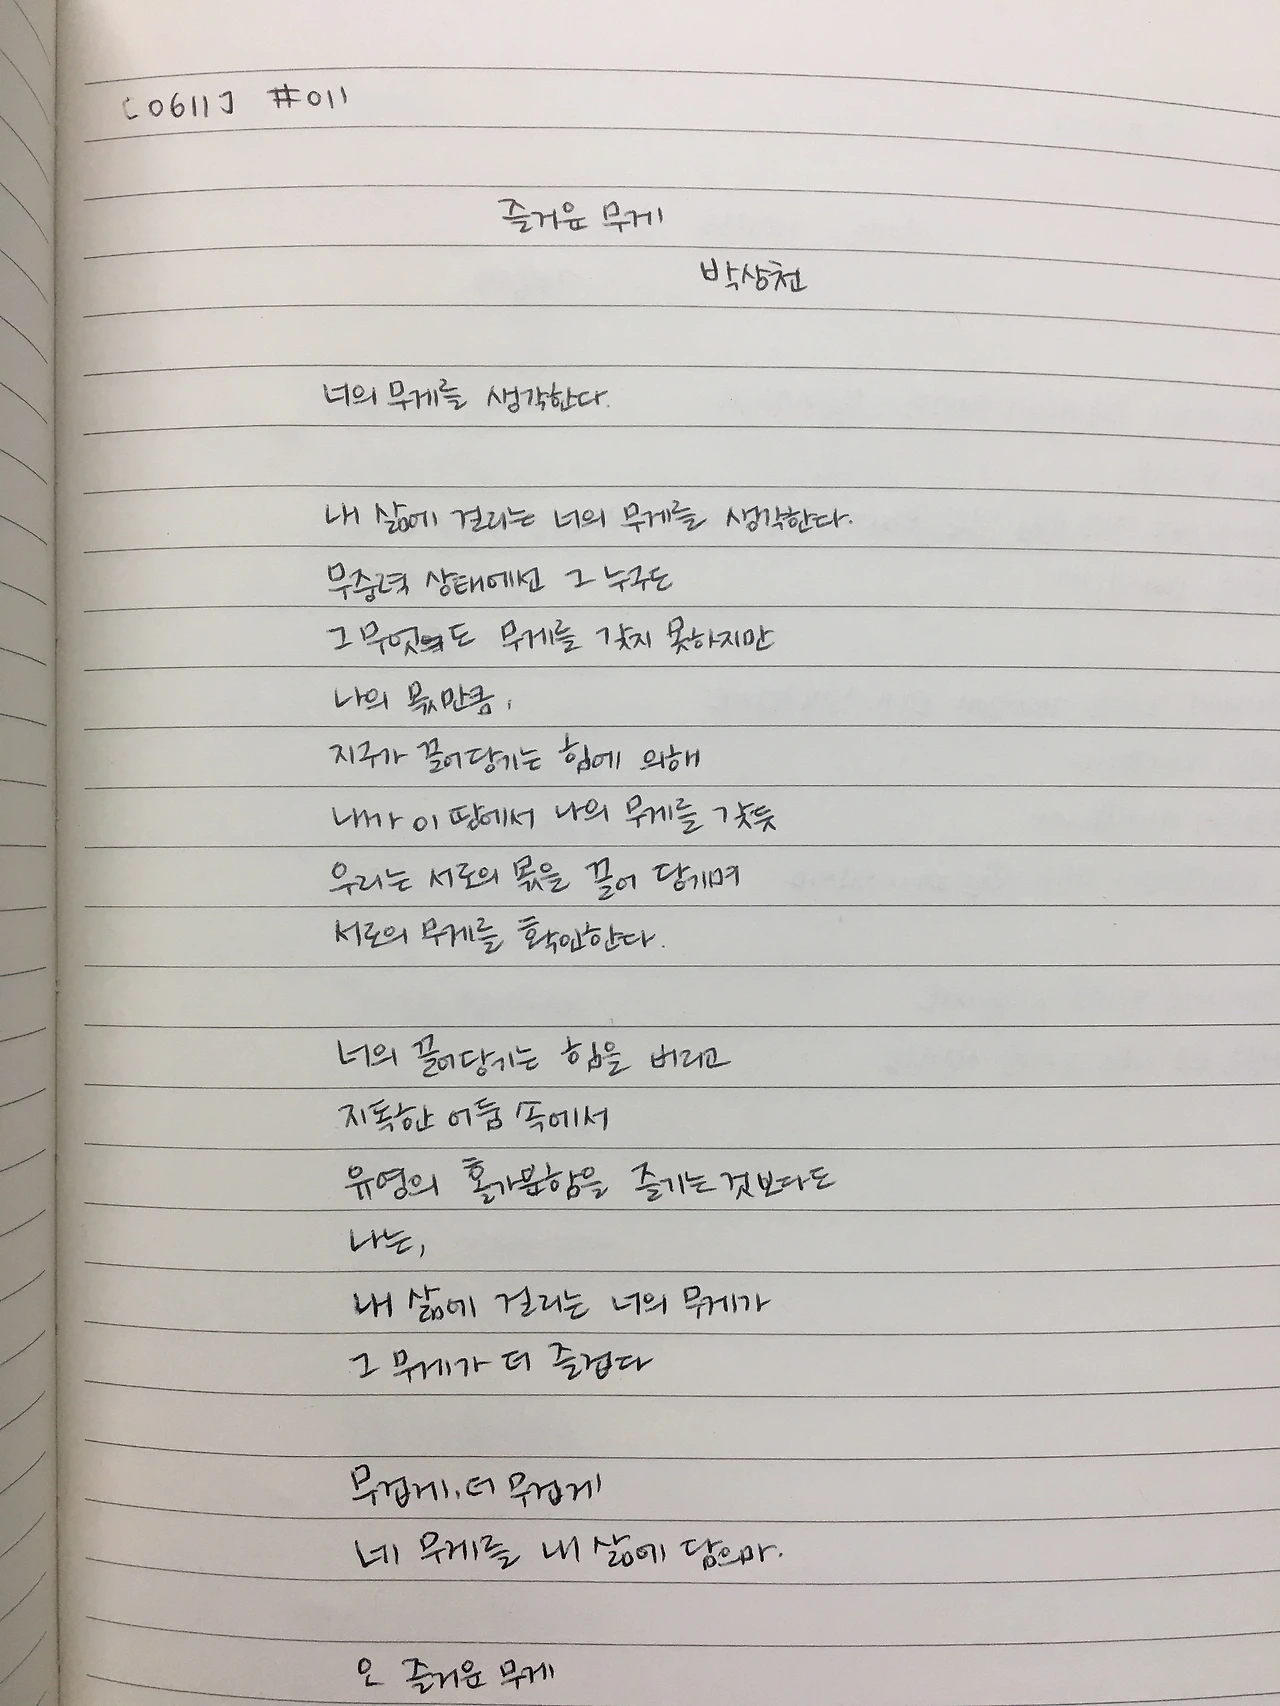 [0611] #011
즐거운 무게
박상천
너의 무게를 생각한다.
내 삶에 걸리는 너의 무게를 생각한다.
무중력 상태에선 그 누구도
그 무엇도 무게를 갖지 못하지만
나의 몫만큼,
지구가 끌어당기는 힘에 의해
내가 이 땅에서 나의 무게를 갖듯
우리는 서로의 몫을 끌어 당기며
서로의 무게를 확인한다.
너의 끌어당기는 힘을 버리고
지독한 어둠 속에서
유영의 홀가분함을 즐기는 것보다도
나는,
내 삶에 걸리는 너의 무게가
그 무게가 더 즐겁다
무겁게, 더 무겁게
네 무게를 내 삶에 담으마.
오 즐거운 무게